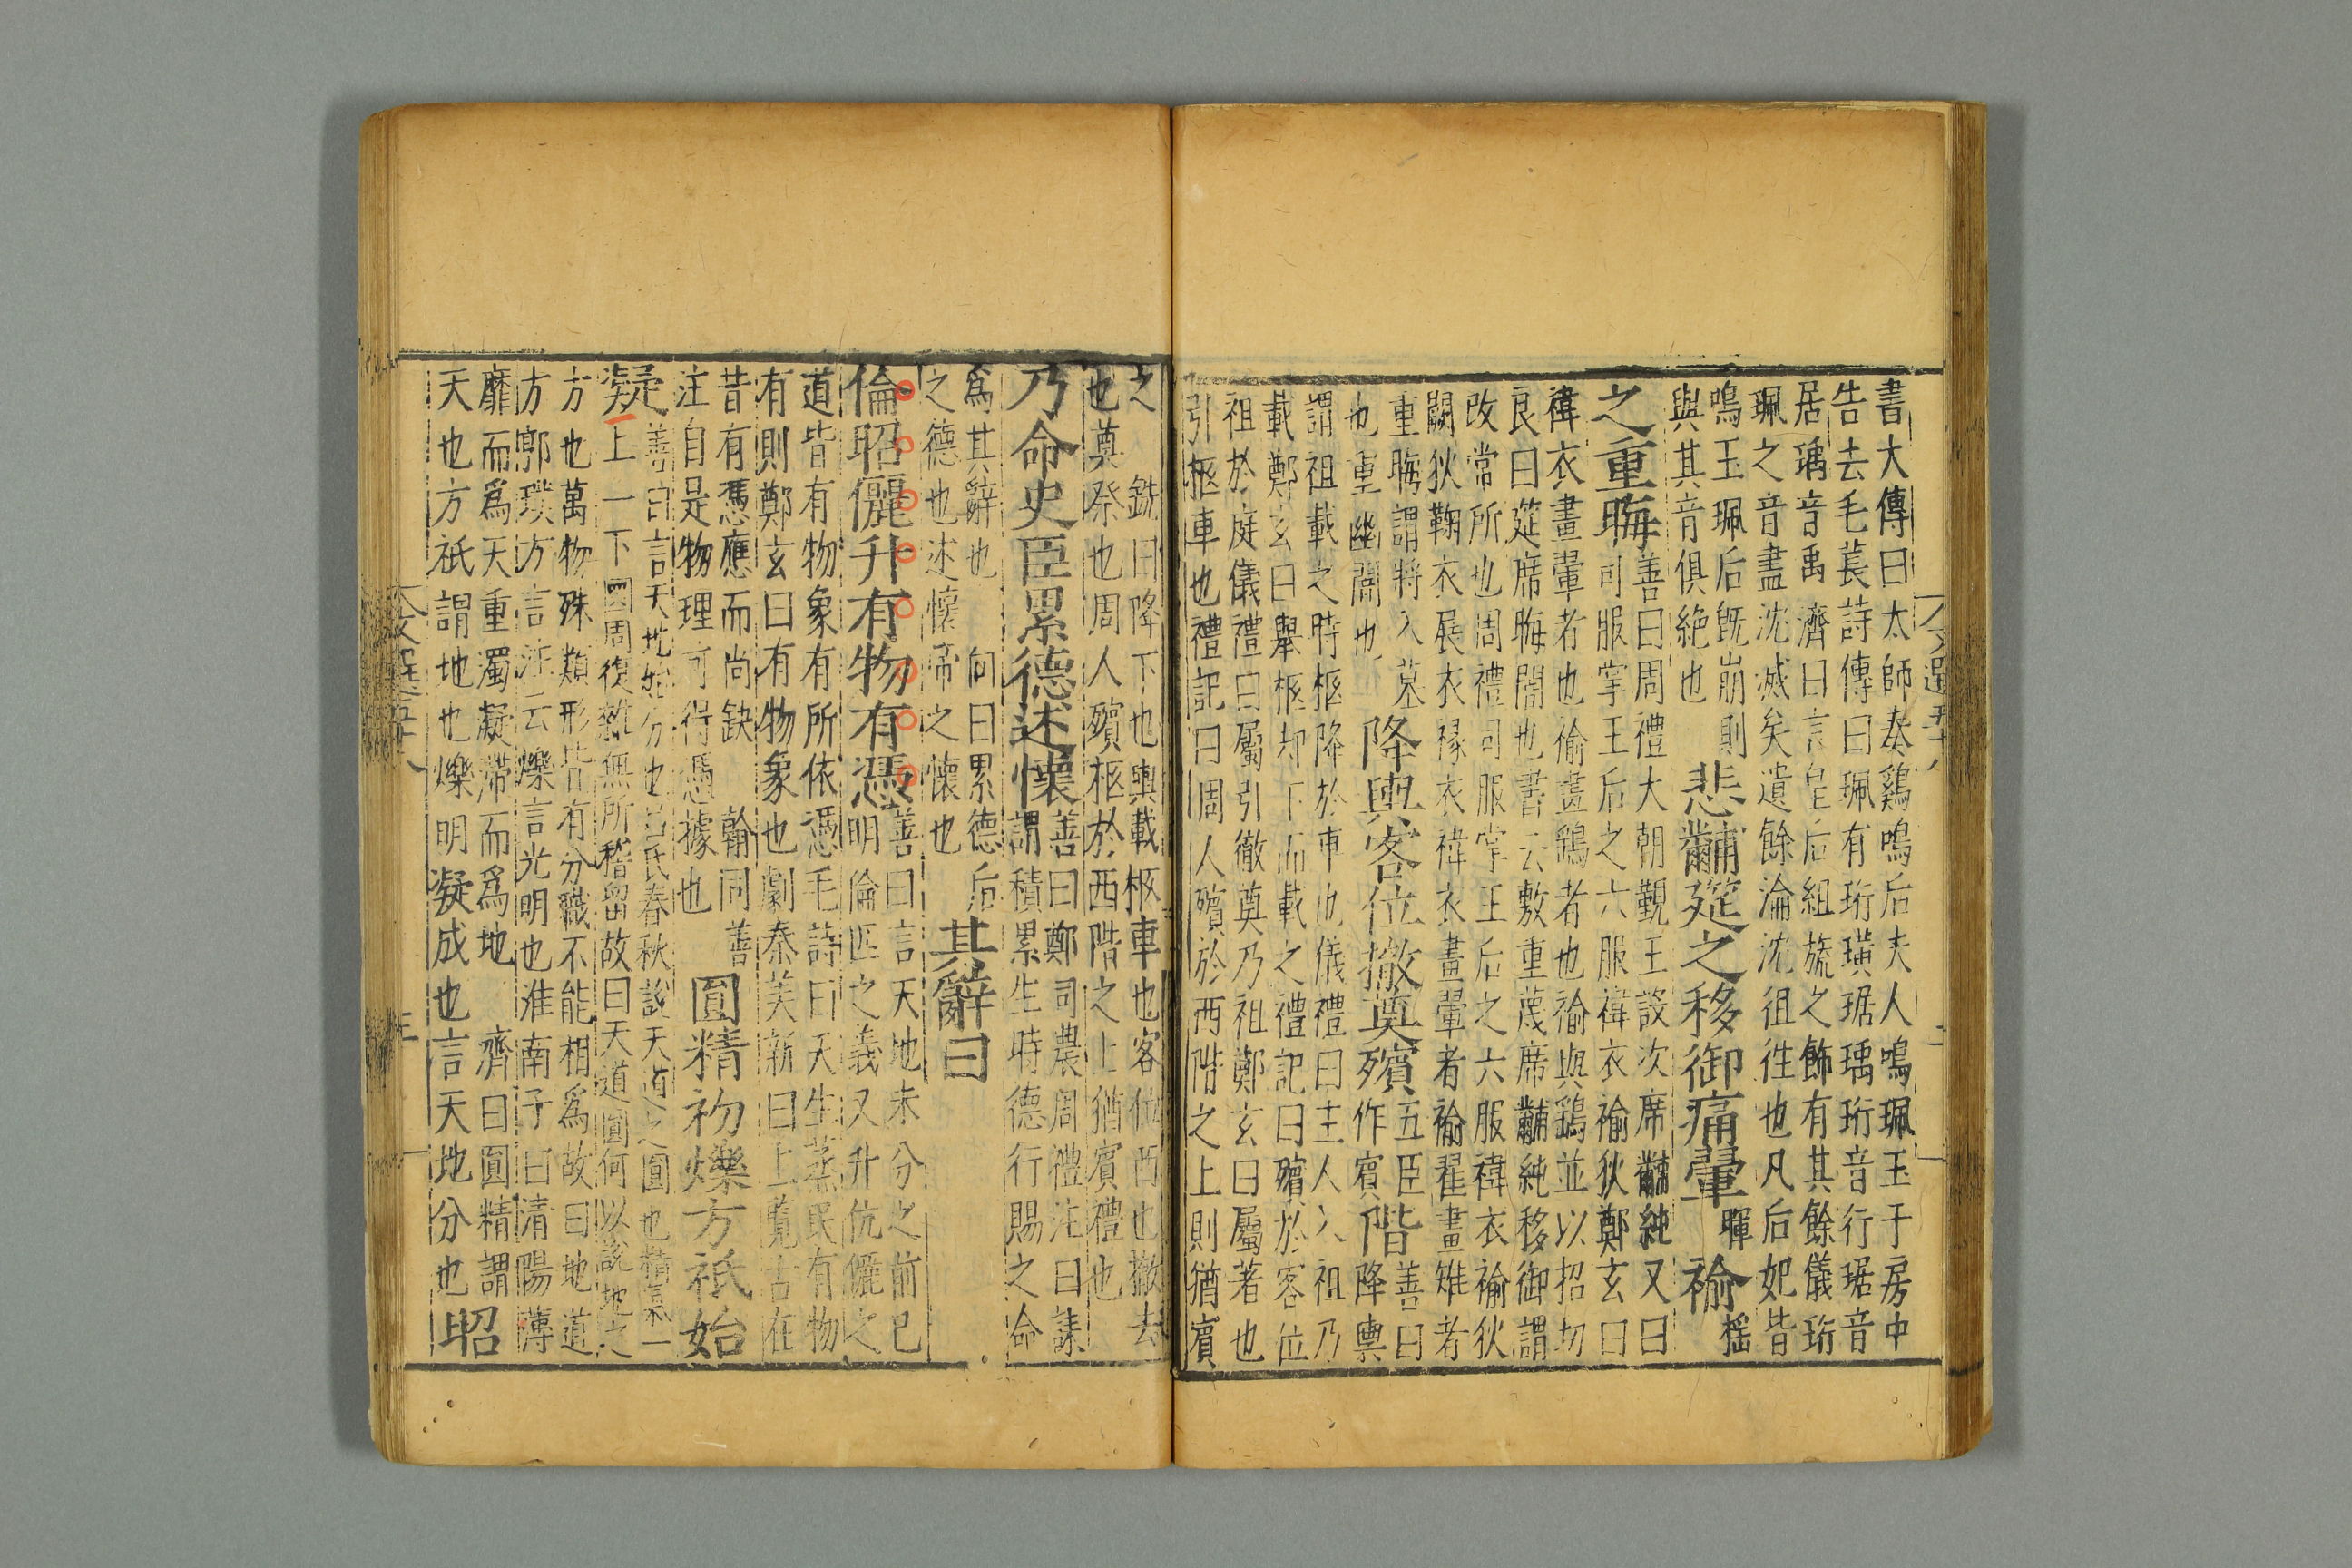 書大傳曰太師奏鷄鳴后夫人鳴珮玉于房中
告去毛萇詩傳曰珮有珩璜琚瑀珩音行琚音
居瑀音禹濟曰言皇后組旒之飾有其餘儀珩
珮之音盡沈滅矣遺餘淪沈徂徃也凡后妃皆
鳴玉珮后旣崩則
與其音俱絶也
悲黼筵之移御痛翬暉褕揺
之重晦
善曰周禮大朝覲王設次席黼純又曰
司服掌王后之六服褘衣褕狄鄭玄曰
褘衣畫翬者也褕畫鷂者也褕與鷂並以招切
良曰筵席晦闇也書云敷重蔑席黼純移御謂
改常所也周禮司服掌王后之六服褘衣褕狄
闕狄鞠衣展衣褖衣褘衣畫翬者褕翟畫雉者
重晦謂將入墓
也重幽闇也
降輿客位撤奠殯五臣作賓階
善曰
降輿
謂祖載之時柩降於車也儀禮曰主人入祖乃
載鄭玄曰舉柩却下而載之禮記曰殯於客位
祖於庭儀禮曰屬引徹奠乃祖鄭玄曰屬著也
引柩車也禮記曰周人殯於西階之上則猶賓
之 銑曰降下也輿載柩車也客位西也撤去
也奠祭也周人殯柩於西階之上猶賓禮也
乃命史臣累德述懷
善曰鄭司農周禮注曰誄
謂積累生時德行賜之命
爲其辭也 向曰累德后
之德也述懷帝之懷也
其辭曰
倫昭儷升有物有憑
善曰言天地未分之前已
明倫匹之義又升伉儷之
道皆有物象有所依憑毛詩曰天生蒸民有物
有則鄭玄曰有物象也劇秦美新曰上覽古在
昔有憑應而尚缺 翰同善
注自是物理可得憑據也
圓精初爍方祇始
凝
善曰言天地始分也呂氏春秋說天道之圓也精氣一
上一下圜周復雜無所稽留故曰天道圓何以說地之
方也萬物殊類形皆有分職不能相爲故曰地道
方郭璞方言注云爍言光明也淮南子曰清陽薄
靡而爲天重濁凝滯而爲地 濟曰圓精謂
天也方祇謂地也爍明凝成也言天地分也
昭